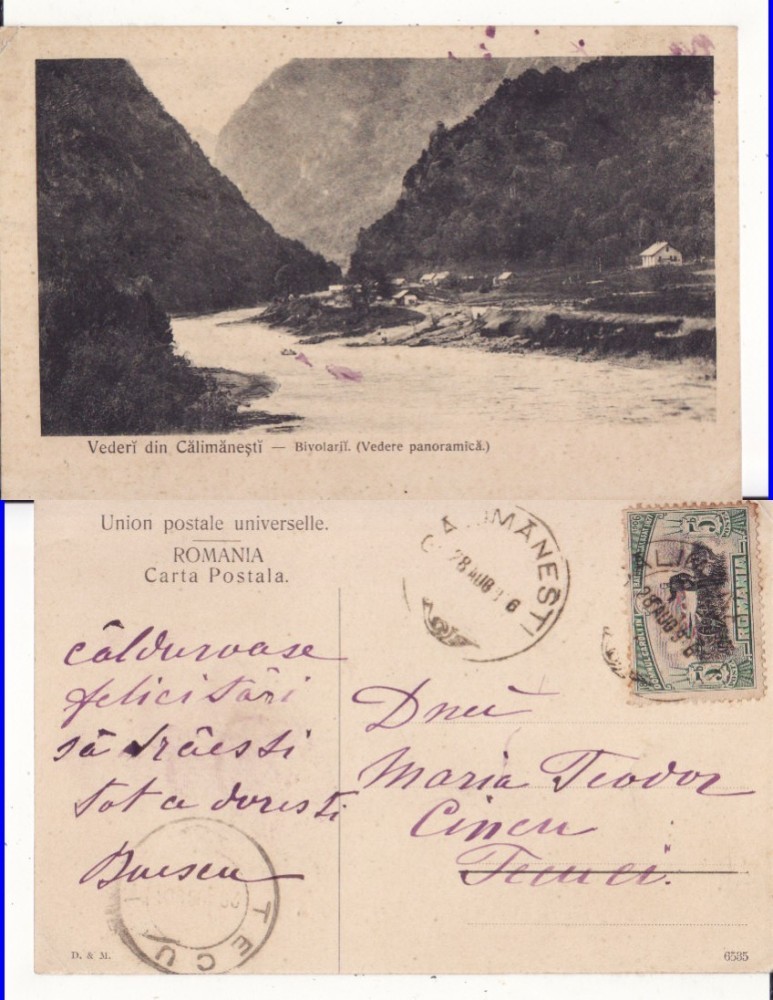 Vederĭ din Călimăneștĭ — Bivolariĭ. (Vedere panoramică.)
Union postale universelle.
ROMANIA
Carta Postala.
CALIMĂNESTI
28 AUG 96
5 5
ROMANIA
28 AUG 96
călduroase
felicitări
să trăesti
tot ce doresti
Dnei
Maria Teodor
Cincu
Tecuci.
TECUCI
D. & M.
6535